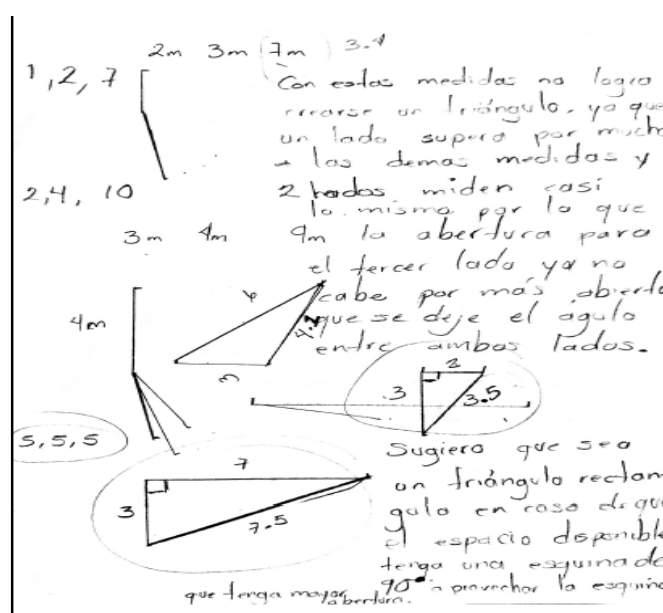 2m 3m 7m 3.4
1, 2, 7
Con estas medidas no logra
crearse un triángulo, ya que
un lado supera por mucho
a las demas medidas y
2, 4, 10
2 lados miden casi
lo mismo por lo que
3m 4m 9m la abertura para
el tercer lado ya no
cabe por más abierto
4m
que se deje el águlo
entre ambos lados.
6
4.2
3
2
3
3.5
5, 5, 5
Sugiero que sea
un triángulo rectan
gulo en caso de que
el espacio disponible
tenga una esquina de
90° aprovechar la esquina
que tenga mayor abertura.
7
3
7.5